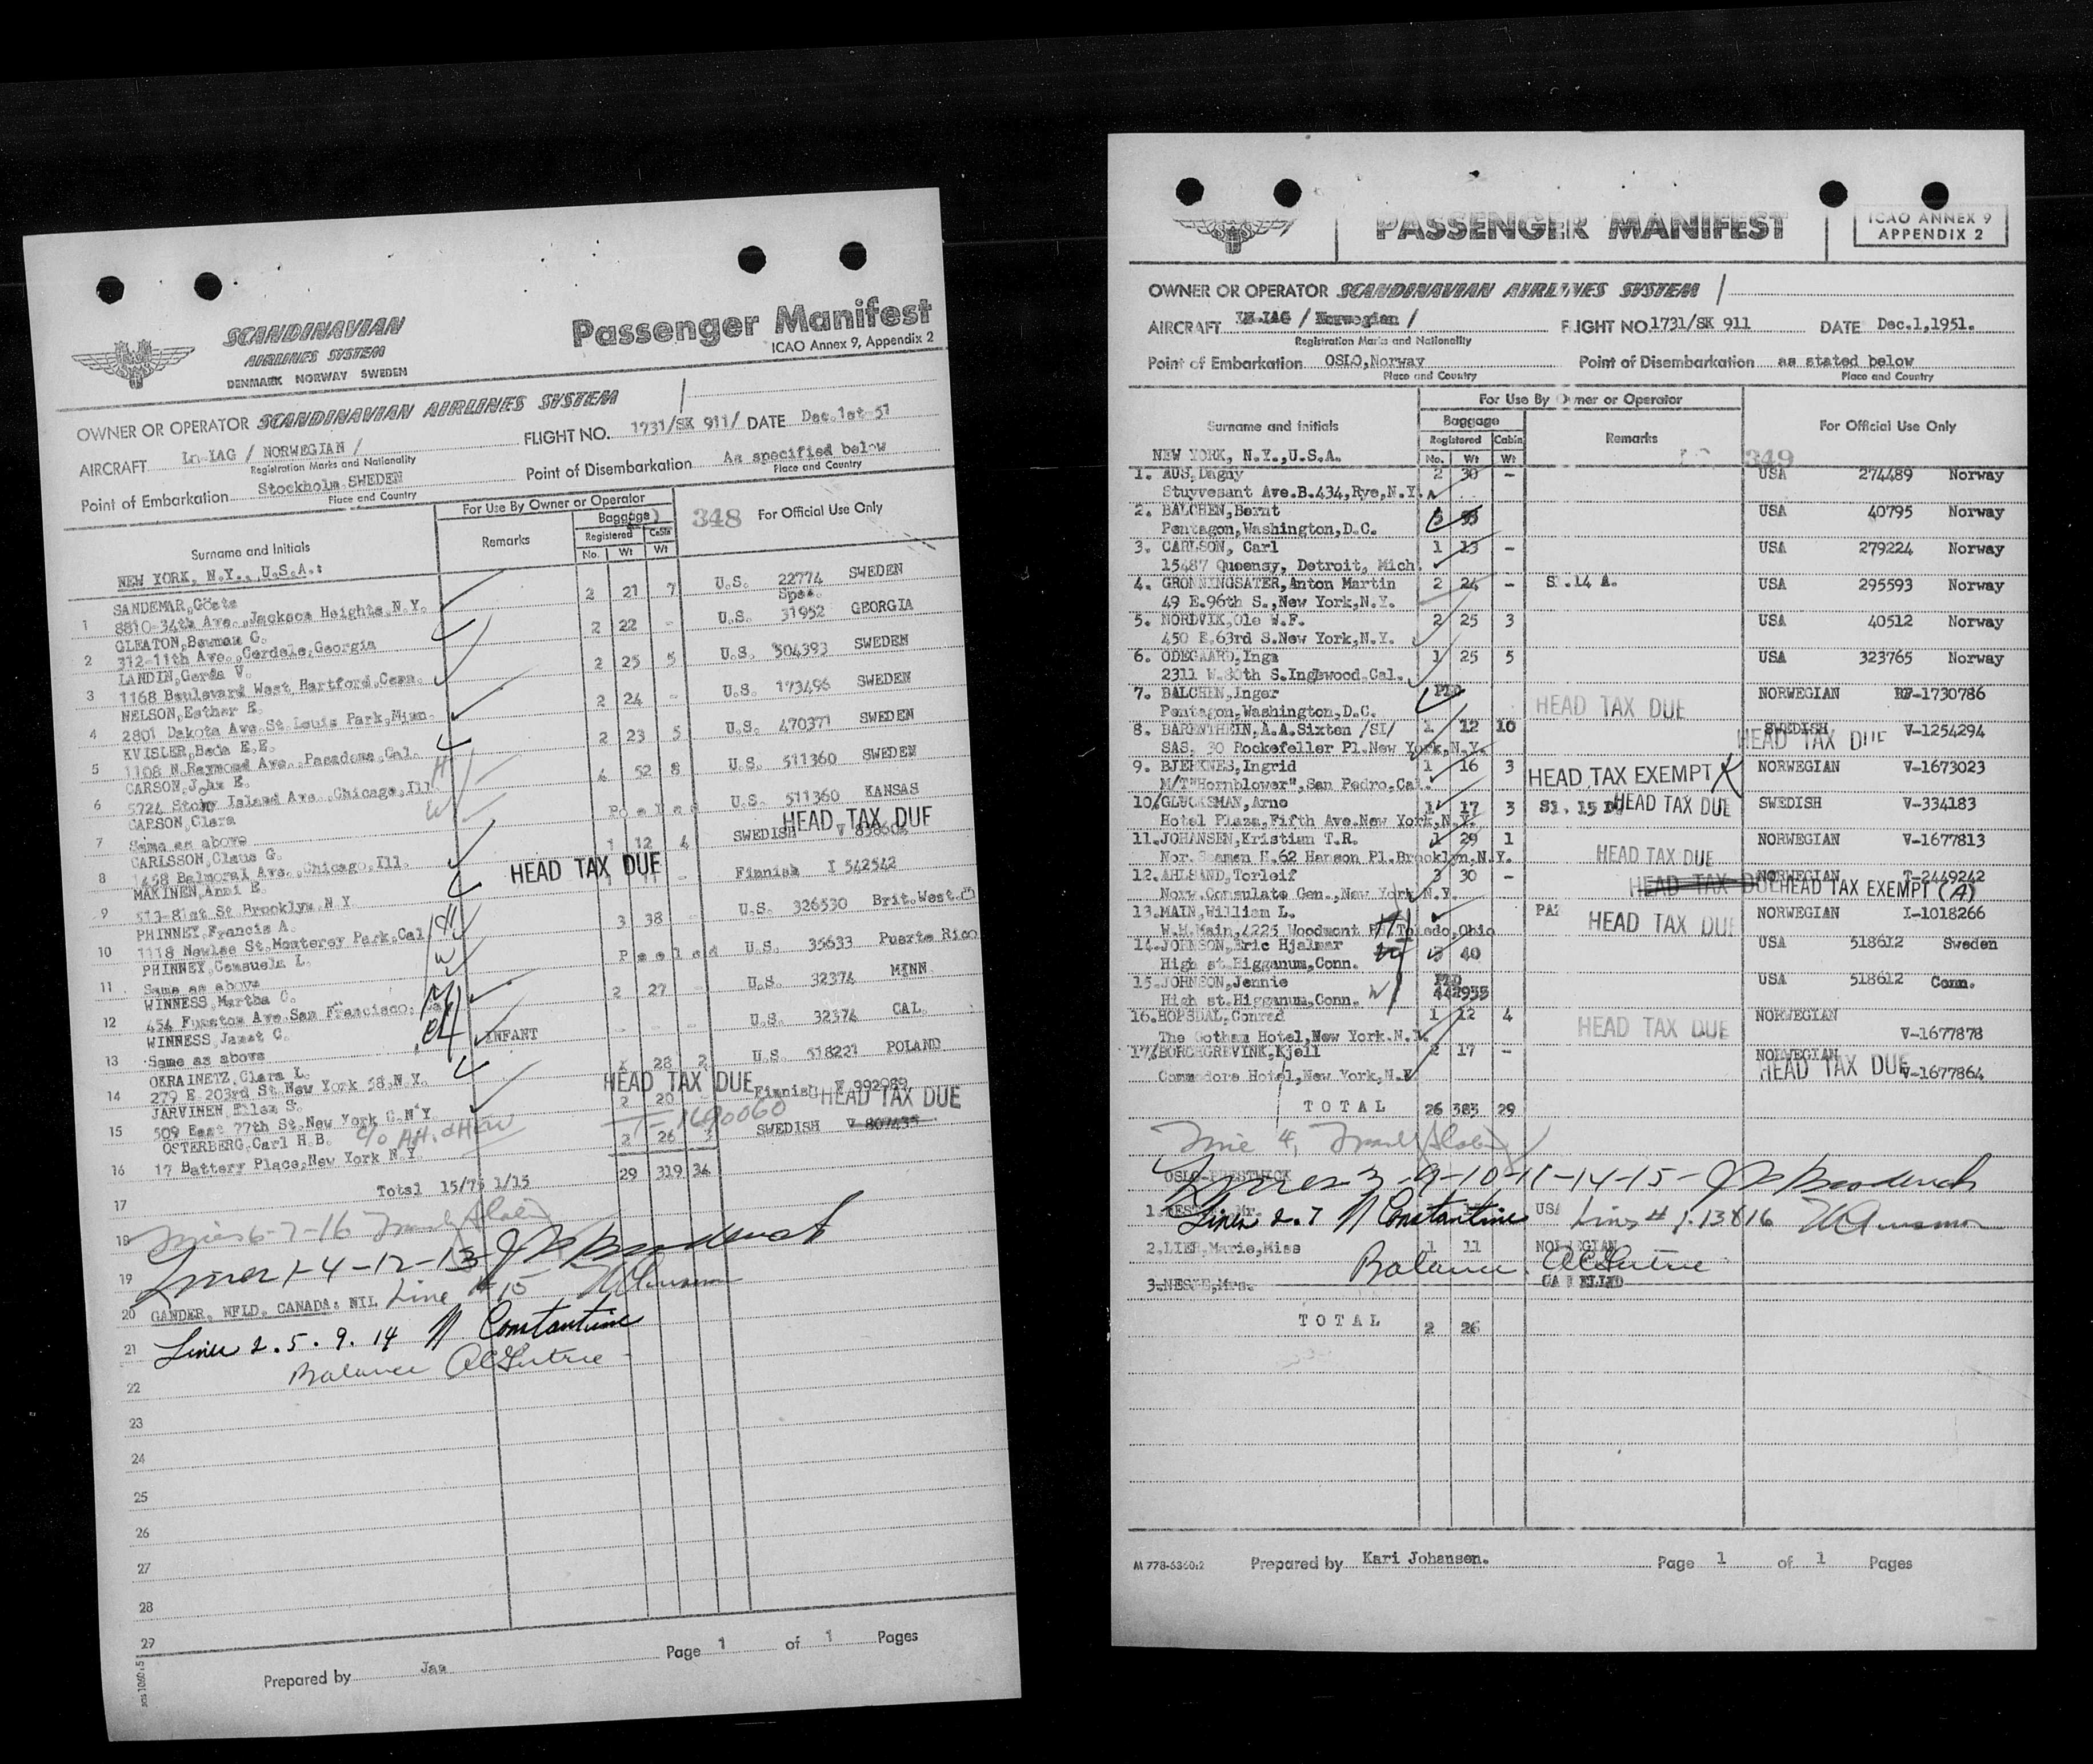 SCANDINAVIAN
AIRLINES SYSTEM
DENMARK NORWAY SWEDEN
Passenger Manifest
ICAO Annex 9, Appendix 2
OWNER OR OPERATOR SCANDINAVIAN AIRLINES SYSTEM
AIRCRAFT Ln-IAG / NORWEGIAN / FLIGHT NO. 1731/SK 911/ DATE Dec.1st-51
Registration Marks and Nationality
Point of Embarkation Stockholm SWEDEN Point of Disembarkation As specified below
Place and Country Place and Country
For Use By Owner or Operator
Baggage 348 For Official Use Only
Surname and Initials Remarks Registered
No. Wt Wt
NEW YORK, N.Y., U.S.A.:
SANDEMAR,Gösta 2 21 7 U.S. 22774 SWEDEN
1 8810-34th Ave.,Jackson Heights,N.Y. Spec.
GLEATON,Bowman G. 2 22 - U.S. 31952 GEORGIA
2 312-11th Ave.,Cordele,Georgia
LANDIN,Gerda V. 2 25 5 U.S. 504393 SWEDEN
3 1168 Boulevard West Hartford,Conn.
NELSON,Esther E. 2 24 - U.S. 173496 SWEDEN
4 2801 Dakota Ave.St.Louis Park,Minn.
KVISLER,Beda E.E. 2 23 5 U.S. 470371 SWEDEN
5 1108 N.Raymond Ave.,Pasadena,Cal.
CARSON,John E. 4 52 8 U.S. 511360 SWEDEN
6 5724 Stony Island Ave.,Chicago,Ill.
CARSON,Clara Pooled U.S. 511360 KANSAS
7 Same as above HEAD TAX DUE
CARLSSON,Claus G. 1 12 4 SWEDISH
8 1458 Balmoral Ave.,Chicago,Ill. HEAD TAX DUE
MAKINEN,Anni E. Finnish I 542542
9 573-81st St Brooklyn N Y
PHINNEY,Francis A. 3 38 U.S. 326530 Brit.West.
10 1118 Newlee St.Monterey Park,Cal
PHINNEY,Consuela L. Pooled U.S. 35633 Puerto Rico
11 Same as above
WINNESS,Martha C. 2 27 - U.S. 32374 MINN.
12 454 Funston Ave.San Francisco,
WINNESS,Janet C. INFANT - - - U.S. 32374 CAL.
13 Same as above
OKRAINETZ,Clara L. 28 2 U.S. 518221 POLAND
14 279 E.203rd St.New York 58,N.Y. HEAD TAX DUE
JARVINEN,Ellen S. 2 20 Finnish V 992089 HEAD TAX DUE
15 509 East 77th St.New York C.N Y T-1690060
OSTERBERG,Carl H.B. 2 26 3 SWEDISH V 807435
16 17 Battery Place,New York N.Y.
Total 15/75 1/15 29 319 34
17
18 Lines 6-7-16
19 Lines 1-4-12-13
20 GANDER, NFLD, CANADA: NIL Line # 15
21 Lines 2.5.9.14 N Constantine
22 Balance
23
24
25
26
27
28
29
Prepared by Jaa Page 1 of 1 Pages
PASSENGER MANIFEST
ICAO ANNEX 9
APPENDIX 2
OWNER OR OPERATOR SCANDINAVIAN AIRLINES SYSTEM
AIRCRAFT LN-IAG / Norwegian / FLIGHT NO.1731/SK 911 DATE Dec.1,1951.
Registration Marks and Nationality
Point of Embarkation OSLO,Norway Point of Disembarkation as stated below
Place and Country Place and Country
For Use By Owner or Operator
Surname and Initials Baggage Remarks For Official Use Only
Registered Cabin
NEW YORK, N.Y.,U.S.A. No. Wt Wt 349
1. AUS,Dagny 2 30 - USA 274489 Norway
Stuyvesant Ave.B.434,Rye,N.Y.
2. BALCHEN,Bernt USA 40795 Norway
Pentagon,Washington,D.C.
3. CARLSON, Carl 1 13 - USA 279224 Norway
15487 Queensy, Detroit, Mich.
4. GRONNINGSATER,Anton Martin 2 24 - Sl.14 A. USA 295593 Norway
49 E.96th S.,New York,N.Y.
5. NORDVIK,Ole W.F. 2 25 3 USA 40512 Norway
450 E.63rd S.New York,N.Y.
6. ODEGAARD,Inga 1 25 5 USA 323765 Norway
2311 W.80th S.Inglewood.Cal.
7. BALCHEN,Inger HEAD TAX DUE NORWEGIAN 1730786
Pentagon,Washington,D.C.
8. BARENTHEIN,A.A.Sixten /SI/ 1 12 10 SWEDISH V-1254294
SAS, 30 Rockefeller Pl.New York,N.Y. HEAD TAX DUE
9. BJERKNES,Ingrid 1 16 3 HEAD TAX EXEMPT NORWEGIAN V-1673023
M/T"Hornblower",San Pedro,Cal.
10.GLUCKSMAN,Arno 1 17 3 Sl.15 HEAD TAX DUE SWEDISH V-334183
Hotel Plaza,Fifth Ave.New York,N.Y.
11.JOHANSEN,Kristian T.R. 1 29 1 HEAD TAX DUE NORWEGIAN V-1677813
Nor. Seamen H.62 Hanson Pl.Brooklyn,N.Y.
12.AHLSAND,Torleif 3 30 - NORWEGIAN T-2449242
Norw.Consulate Gen.,New York,N.Y. HEAD TAX DUE HEAD TAX EXEMPT (A)
13.MAIN,William L. HEAD TAX DUE NORWEGIAN I-1018266
W.M.Main,4225 Woodmont Toledo,Ohio
14.JOHNSON,Eric Hjalmar 3 40 USA 518612 Sweden
High st.Higganum,Conn.
15.JOHNSON,Jennie USA 518612 Conn.
High st.Higganum,Conn.
16.HOPSDAL,Conrad 1 12 4 HEAD TAX DUE NORWEGIAN
The Gotham Hotel,New York.N.Y. V-1677878
17.BORCHGREVINK,Kjell 2 17 - NORWEGIAN
Commodore Hotel,New York,N.Y. HEAD TAX DUE V-1677864
TOTAL 26 383 29
OSLO-PRESTWICK
Lines 3-9-10-11-14-15-
Lines 2.7 N Constantine USA Lines # 1.13 & 16
2.LIEN,Marie,Miss 1 11 NORWEGIAN
Balance
3.NESTE,Mrs.
TOTAL 2 26
M 778-6360:2 Prepared by Kari Johansen. Page 1 of 1 Pages